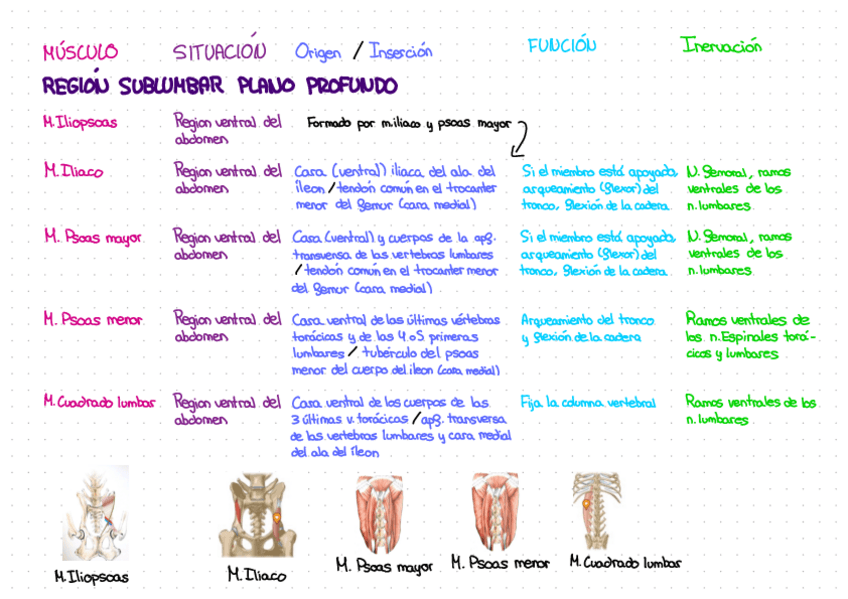 MÚSCULO SITUACIÓN Origen / Inserción FUNCIÓN Inervación
REGIÓN SUBLUMBAR PLANO PROFUNDO
M. Iliopsoas
Region ventral del
abdomen
Formado por m.iliaco y psoas mayor
M. Iliaco
Region ventral del
abdomen
Cara (ventral) iliaca del ala del
íleon / tendón común en el trocanter
menor del femur (cara medial)
Si el miembro está apoyado,
arqueamiento (flexor) del
tronco, flexión de la cadera.
N. femoral, ramos
ventrales de los
n.lumbares
M. Psoas mayor
Region ventral del
abdomen
Cara (ventral) y cuerpos de la apf.
transversa de las vertebras lumbares
/ tendón común en el trocanter menor
del femur (cara medial)
Si el miembro está apoyado,
arqueamiento (flexor) del
tronco, flexión de la cadera.
N. femoral, ramos
ventrales de los
n.lumbares
M. Psoas menor
Region ventral del
abdomen
Cara ventral de las últimas vértebras
torácicas y de las 4 o 5 primeras
lumbares / tubérculo del psoas
menor del cuerpo del ileon (cara medial)
Arqueamiento del tronco
y flexión de la cadera
Ramos ventrales de
los n.Espinales torá-
cicos y lumbares
M. Cuadrado lumbar
Region ventral del
abdomen
Cara ventral de los cuerpos de las
3 últimas v. torácicas / apf. transversa
de las vertebras lumbares y cara medial
del ala del íleon
Fija la columna vertebral
Ramos ventrales de los
n.lumbares
M. Iliopsoas
M. Iliaco
M. Psoas mayor
M. Psoas menor
M. Cuadrado lumbar